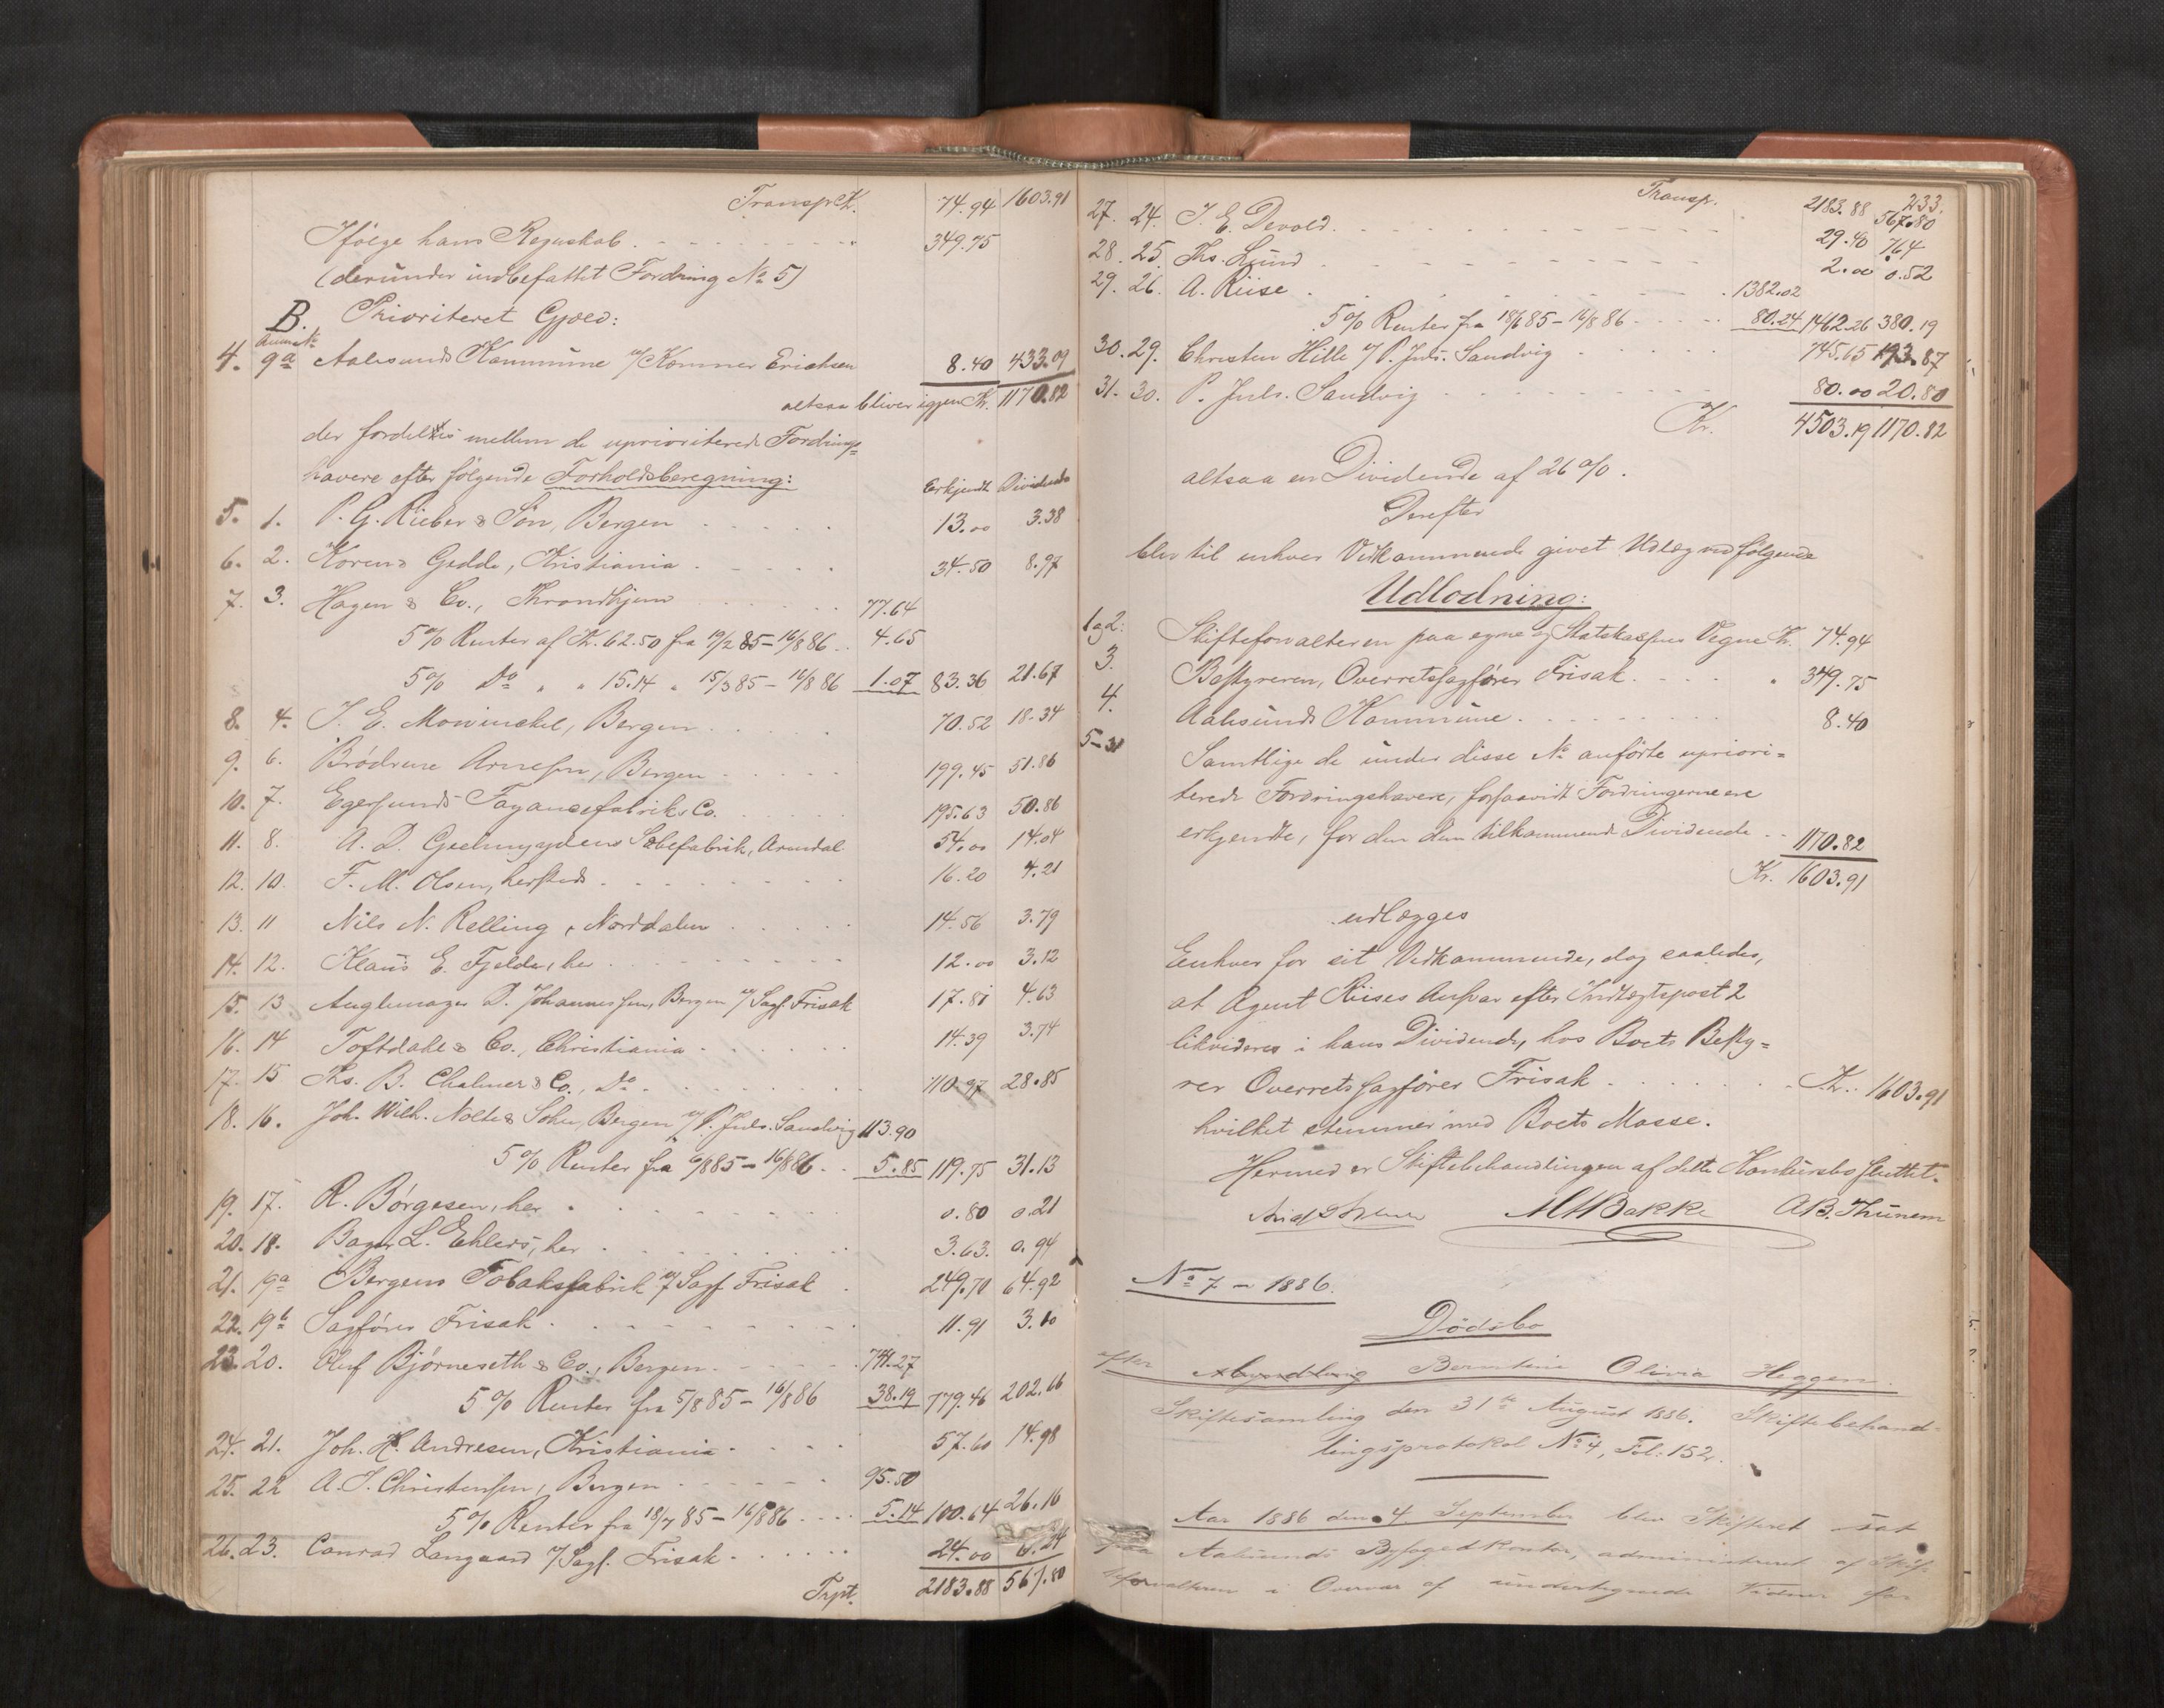 Transp. Kr. 74.94 1603.91
Ifølge hans Regnskab 349.75
(derunder indbefattet Fordring No 5)
B. Prioriteret Gjæld:
Anm. No
4. 9a Aalesunds Kommune v/ Kæmner Erichsen 8.40 433.09
altsaa bliver igjen Kr. 1170.82
der fordeles mellem de uprioriterede Fordrings=
havere efter følgende Forholdsberegning: Erkjendt Dividende
5. 1. P. G. Rieber & Søn, Bergen 13.00 3.38
6. 2. Gedde, Kristiania 34.50 8.97
7. 3. Hagen & Co., Throndhjem 77.64
5% Renter af Kr. 62.50 fra 19/2 85 – 16/8 86 4.65
5% Do " " 15.14 " 15/3 85 – 16/8 86 1.07 83.36 21.67
8. 4. J. E. Mowinckel, Bergen 70.52 18.34
9. 6. Brødrene Arnesen, Bergen 199.45 51.86
10. 7. Egersunds Fayancefabriks Co. 195.63 50.86
11. 8. A. D. Geelmuydens Sæbefabrik, Arendal 54.00 14.04
12. 10. F. M. Olsen, hersteds 16.20 4.21
13. 11 Nils N. Relling, Norddalen 14.56 3.79
14. 12. Klaus E. Fjelde, her 12.00 3.12
15. 13 D. Johannessen, Bergen v/ Sagf. Frisak 17.81 4.63
16. 14 Toftdahl & Co., Christiania 14.39 3.74
17. 15 Ths. B. Chalmer & Co., Do 110.97 28.85
18. 16. Joh. Wilh. Nolte & Sohn, Bergen v/ P. Juls. Sandvig 113.90
5% Renter fra 6/8 85 – 16/8 86 5.85 119.75 31.13
19. 17. R. Børgesen, her 0.80 0.21
20. 18. Bager L. Ehlers, her 3.63. 0.94
21. 19a Bergens Tobaksfabrik v/ Sagf Frisak 249.70 64.92
22. 19b Sagfører Frisak 11.91 3.10
23. 20. Oluf Bjørneseth & Co., Bergen 741.27
5% Renter fra 5/8 85 – 16/8 86 38.19 779.46 202.66
24. 21. Joh. H. Andresen, Kristiania 57.60 14.98
25. 22 A. J. Christensen, Bergen 95.50
5% Renter fra 18/7 85 – 16/8 86 5.14 100.64 26.16
26. 23. Conrad Langaard v/ Sagf. Frisak 24.00 6.24
Trpt. 2183.88 567.80
233.
Transp. 2183.88 567.80
27. 24. J. E. Devold 29.40 7.64
28. 25. Ths. Lund 2.00 0.52
29. 26. A. Riise 1382.02
5% Renter fra 18/6 85 – 16/8 86 80.24 1462.26 380.19
30. 29. Christen Hille v/ P. Juls. Sandvig 745.65 193.87
31. 30. P. Juls. Sandvig 80.00 20.80
Kr. 4503.19 1170.82
altsaa en Dividende af 26%.
Derefter
blev til enhver Vedkommende givet Udlæg ved følgende
Udlodning:
1 og 2: Skifteforvalteren paa egne og Statskassens Vegne Kr. 74.94
3. Bestyreren, Overretssagfører Frisak " 349.75
4. Aalesunds Kommune 8.40
5–31 Samtlige de under disse No anførte upriori=
terede Fordringshavere, forsaavidt Fordringerne ere
erkjendte, for den dem tilkommende Dividende 1170.82
Kr. 1603.91
udlægges
Enhver for sit Vedkommende, dog saaledes,
at Agent Riises Ansvar efter Indtægtspost 2
likvideres i hans Dividende, hos Boets Besty=
rer Overretssagfører Frisak Kr. 1603.91
hvilket stemmer med Boets Masse.
Hermed er Skiftebehandlingen af dette Konkursbo sluttet.
M H Bakke A B. Thunem
No 7 – 1886.
Dødsbo
efter Berntine Olivia Heggen.
Skiftesamling den 31te August 1886. Skiftebehand=
lingsprotokol No 4, Fol: 152.
Aar 1886 den 4. September blev Skifteret sat
paa Aalesunds Byfogedkontor, administreret af Skif=
teforvalteren i Overvær af undertegnede Vidner for